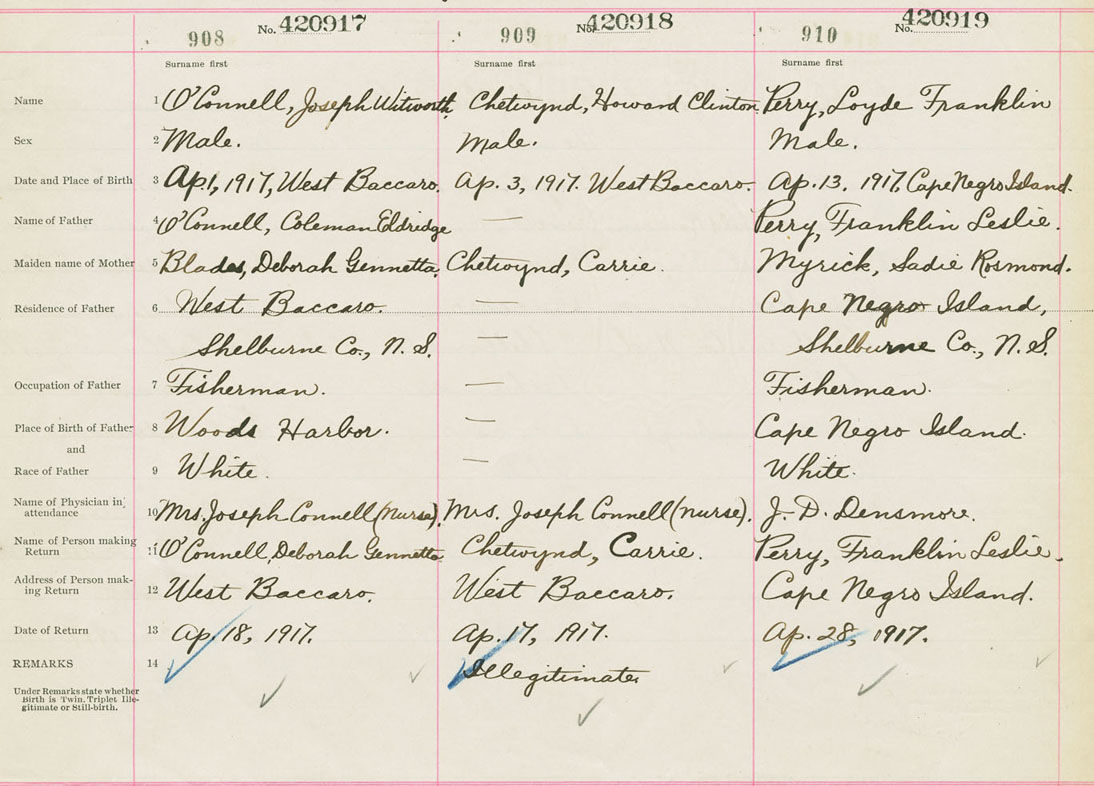 908 No. 420917 909 No. 420918 910 No. 420919
Surname first Surname first Surname first
Name 1 O'Connell, Joseph Witworth Chetwynd, Howard Clinton. Perry, Loyde Franklin
Sex 2 Male. Male. Male.
Date and Place of Birth 3 Ap 1, 1917, West Baccaro. Ap. 3, 1917. West Baccaro. Ap. 13. 1917. Cape Negro Island.
Name of Father 4 O'Connell, Coleman Eldridge — Perry, Franklin Leslie.
Maiden name of Mother 5 Blades, Deborah Gennetta. Chetwynd, Carrie. Myrick, Sadie Rosmond.
Residence of Father 6 West Baccaro. — Cape Negro Island,
Shelburne Co., N.S. — Shelburne Co., N.S.
Occupation of Father 7 Fisherman. — Fisherman.
Place of Birth of Father 8 Woods Harbor. — Cape Negro Island.
and
Race of Father 9 White. — White.
Name of Physician in attendance 10 Mrs. Joseph Connell (nurse). Mrs. Joseph Connell (nurse). J. D. Densmore.
Name of Person making Return 11 O'Connell, Deborah Gennetta. Chetwynd, Carrie. Perry, Franklin Leslie.
Address of Person mak-
ing Return 12 West Baccaro. West Baccaro. Cape Negro Island.
Date of Return 13 Ap. 18, 1917. Ap. 17, 1917. Ap. 28, 1917.
REMARKS 14 Illegitimate.
Under Remarks state whether
Birth is Twin, Triplet, Ille-
gitimate or Still-birth.